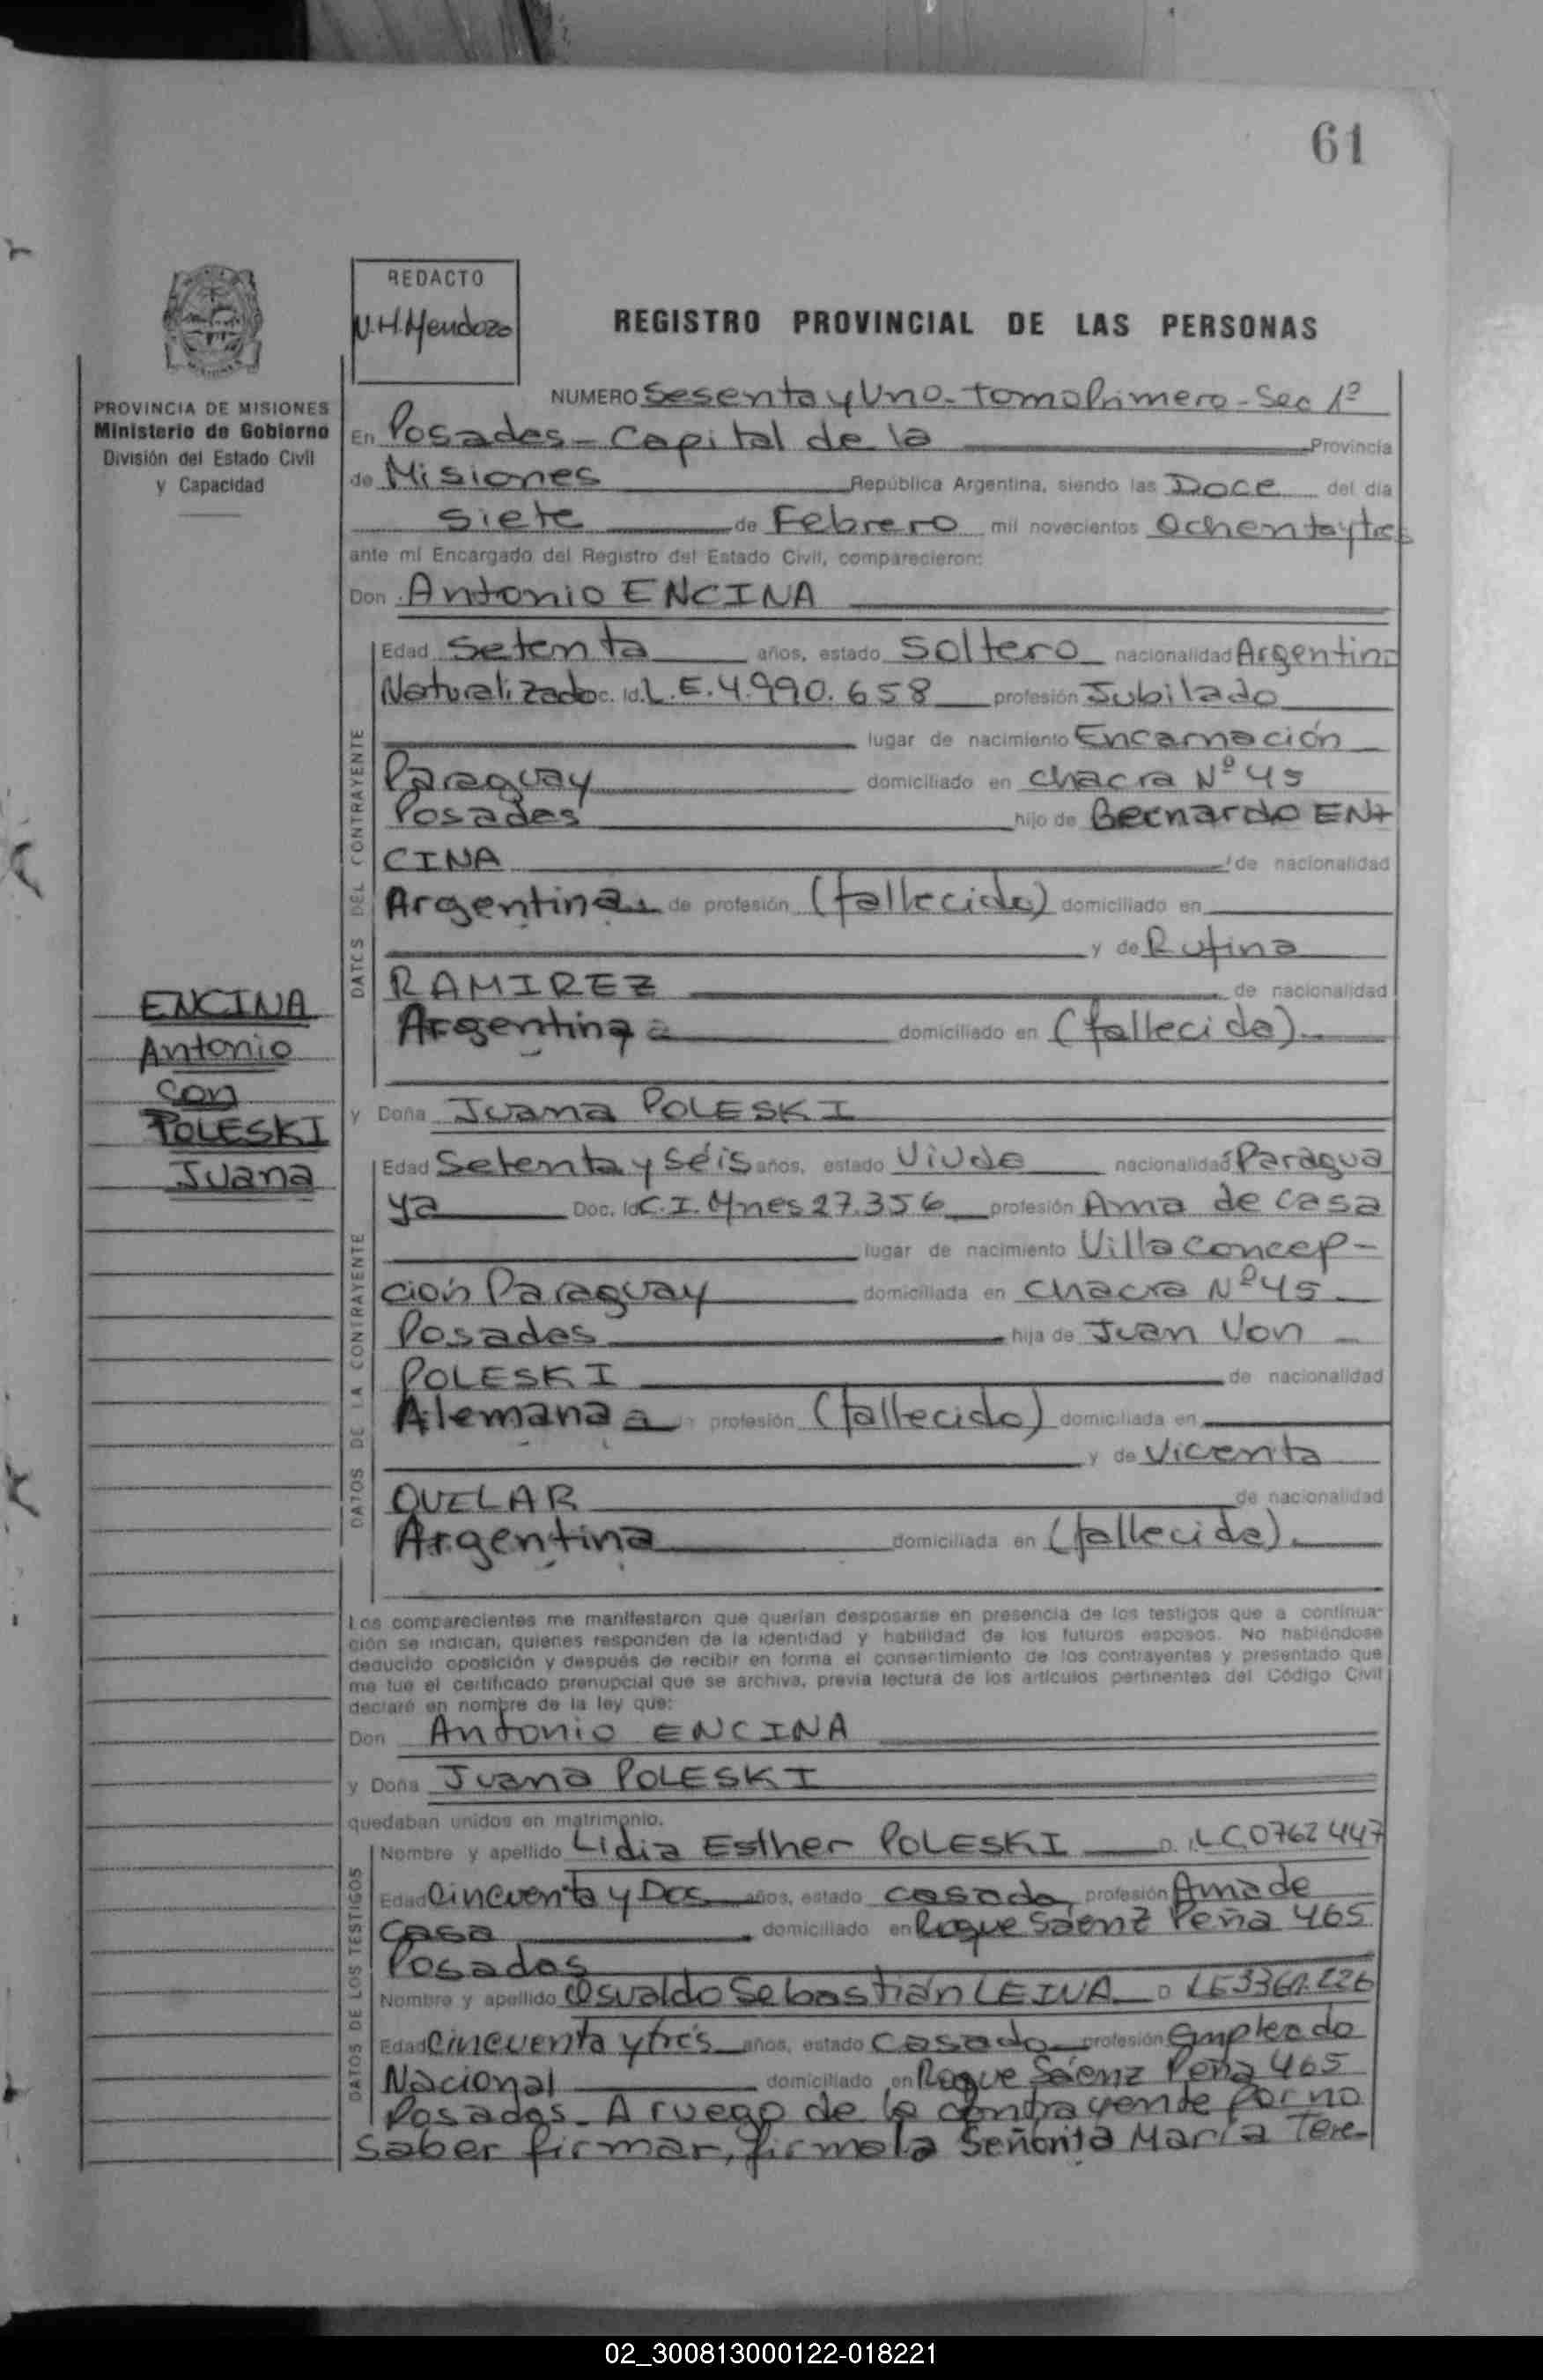 61
REDACTO
N.H.Mendozo
REGISTRO PROVINCIAL DE LAS PERSONAS
PROVINCIA DE MISIONES
Ministerio de Gobierno
División del Estado Civil
y Capacidad
NUMERO Sesenta y Uno - Tomo Primero - Sec 1º
En Posadas - Capital de la Provincia
de Misiones República Argentina, siendo las Doce del día
siete de Febrero mil novecientos Ochenta y tres
ante mí Encargado del Registro del Estado Civil, comparecieron:
Don Antonio ENCINA
DATOS DEL CONTRAYENTE
Edad Setenta años, estado Soltero nacionalidad Argentina
Naturalizado Doc. Id. L.E. 4.990.658 profesión Jubilado
lugar de nacimiento Encarnación
Paraguay domiciliado en chacra Nº 45
Posadas hijo de Bernardo EN
CINA de nacionalidad
Argentina de profesión (fallecido) domiciliado en
y de Rufina
RAMIREZ de nacionalidad
Argentina domiciliado en (fallecida).
ENCINA
Antonio
con
POLESKI
Juana
y Doña Juana POLESKI
DATOS DE LA CONTRAYENTE
Edad Setenta y séis años, estado Viuda nacionalidad Paragua
ya Doc. Id C.I. Mnes 27.356 profesión Ama de casa
lugar de nacimiento Villa Concep-
ción Paraguay domiciliada en chacra Nº 45
Posadas hija de Juan Von
POLESKI de nacionalidad
Alemana profesión (fallecido) domiciliada en
y de Vicenta
OVELAR de nacionalidad
Argentina domiciliada en (fallecida).
Los comparecientes me manifestaron que querían desposarse en presencia de los testigos que a continua-
ción se indican, quienes responden de la identidad y habilidad de los futuros esposos. No habiéndose
deducido oposición y después de recibir en forma el consentimiento de los contrayentes y presentado que
me fue el certificado prenupcial que se archiva, previa lectura de los artículos pertinentes del Código Civil
declaré en nombre de la ley que:
Don Antonio ENCINA
y Doña Juana POLESKI
quedaban unidos en matrimonio.
DATOS DE LOS TESTIGOS
Nombre y apellido Lidia Esther POLESKI D. I. LC, 0762 447
Edad Cincuenta y Dos años, estado casada profesión Ama de
casa domiciliado en Roque Saenz Peña 465
Posadas
Nombre y apellido Osvaldo Sebastián LEIVA D LE 3361.226
Edad Cincuenta y trés años, estado casado profesión Empleado
Nacional domiciliado en Roque Sáenz Peña 465
Posadas - A ruego de la contrayente por no
saber firmar, firma la Señorita María Tere-
02_300813000122-018221